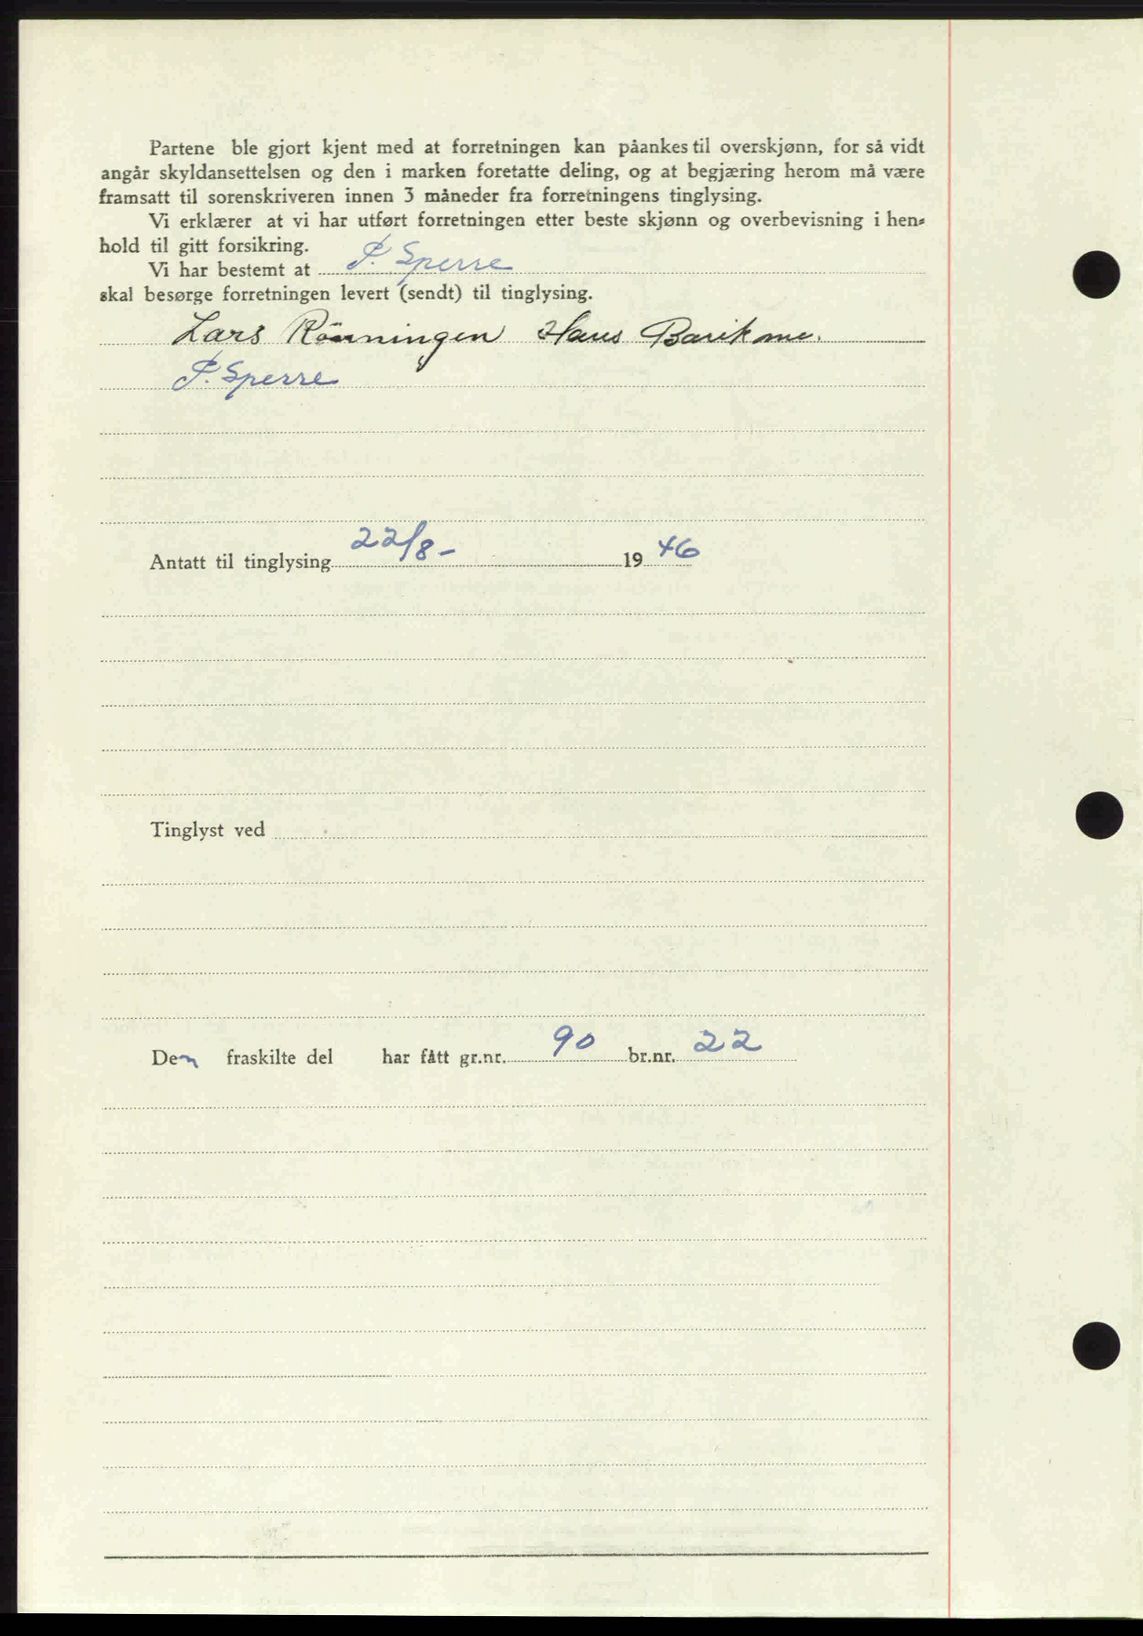 Partene ble gjort kjent med at forretningen kan påankes til overskjønn, for så vidt
angår skyldansettelsen og den i marken foretatte deling, og at begjæring herom må være
framsatt til sorenskriveren innen 3 måneder fra forretningens tinglysing.
Vi erklærer at vi har utført forretningen etter beste skjønn og overbevisning i hen-
hold til gitt forsikring.
Vi har bestemt at P. Sperre
skal besørge forretningen levert (sendt) til tinglysing.
Lars Rönningen Hans
P. Sperre
Antatt til tinglysing 22/8- 1946
Tinglyst ved
Den fraskilte del har fått gr.nr. 90 br.nr. 22